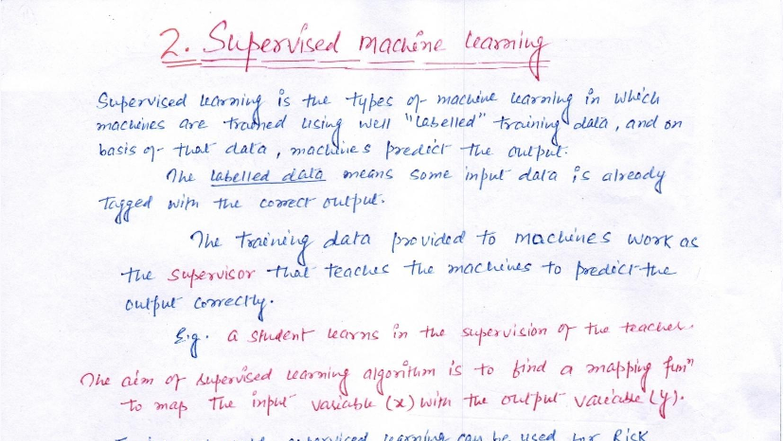 2. Supervised machine learning
Supervised learning is the types of machine learning in which
machines are trained using well "labelled" training data, and on
basis of that data, machines predict the output.
The labelled data means some input data is already
Tagged with the correct output.
The training data provided to machines work as
the supervisor that teaches the machines to predict the
output correctly.
E.g. a student learns in the supervision of the teacher.
The aim of supervised learning algorithm is to find a mapping funⁿ
to map the input variable (x) with the output variable (y).
supervised learning can be used for Risk